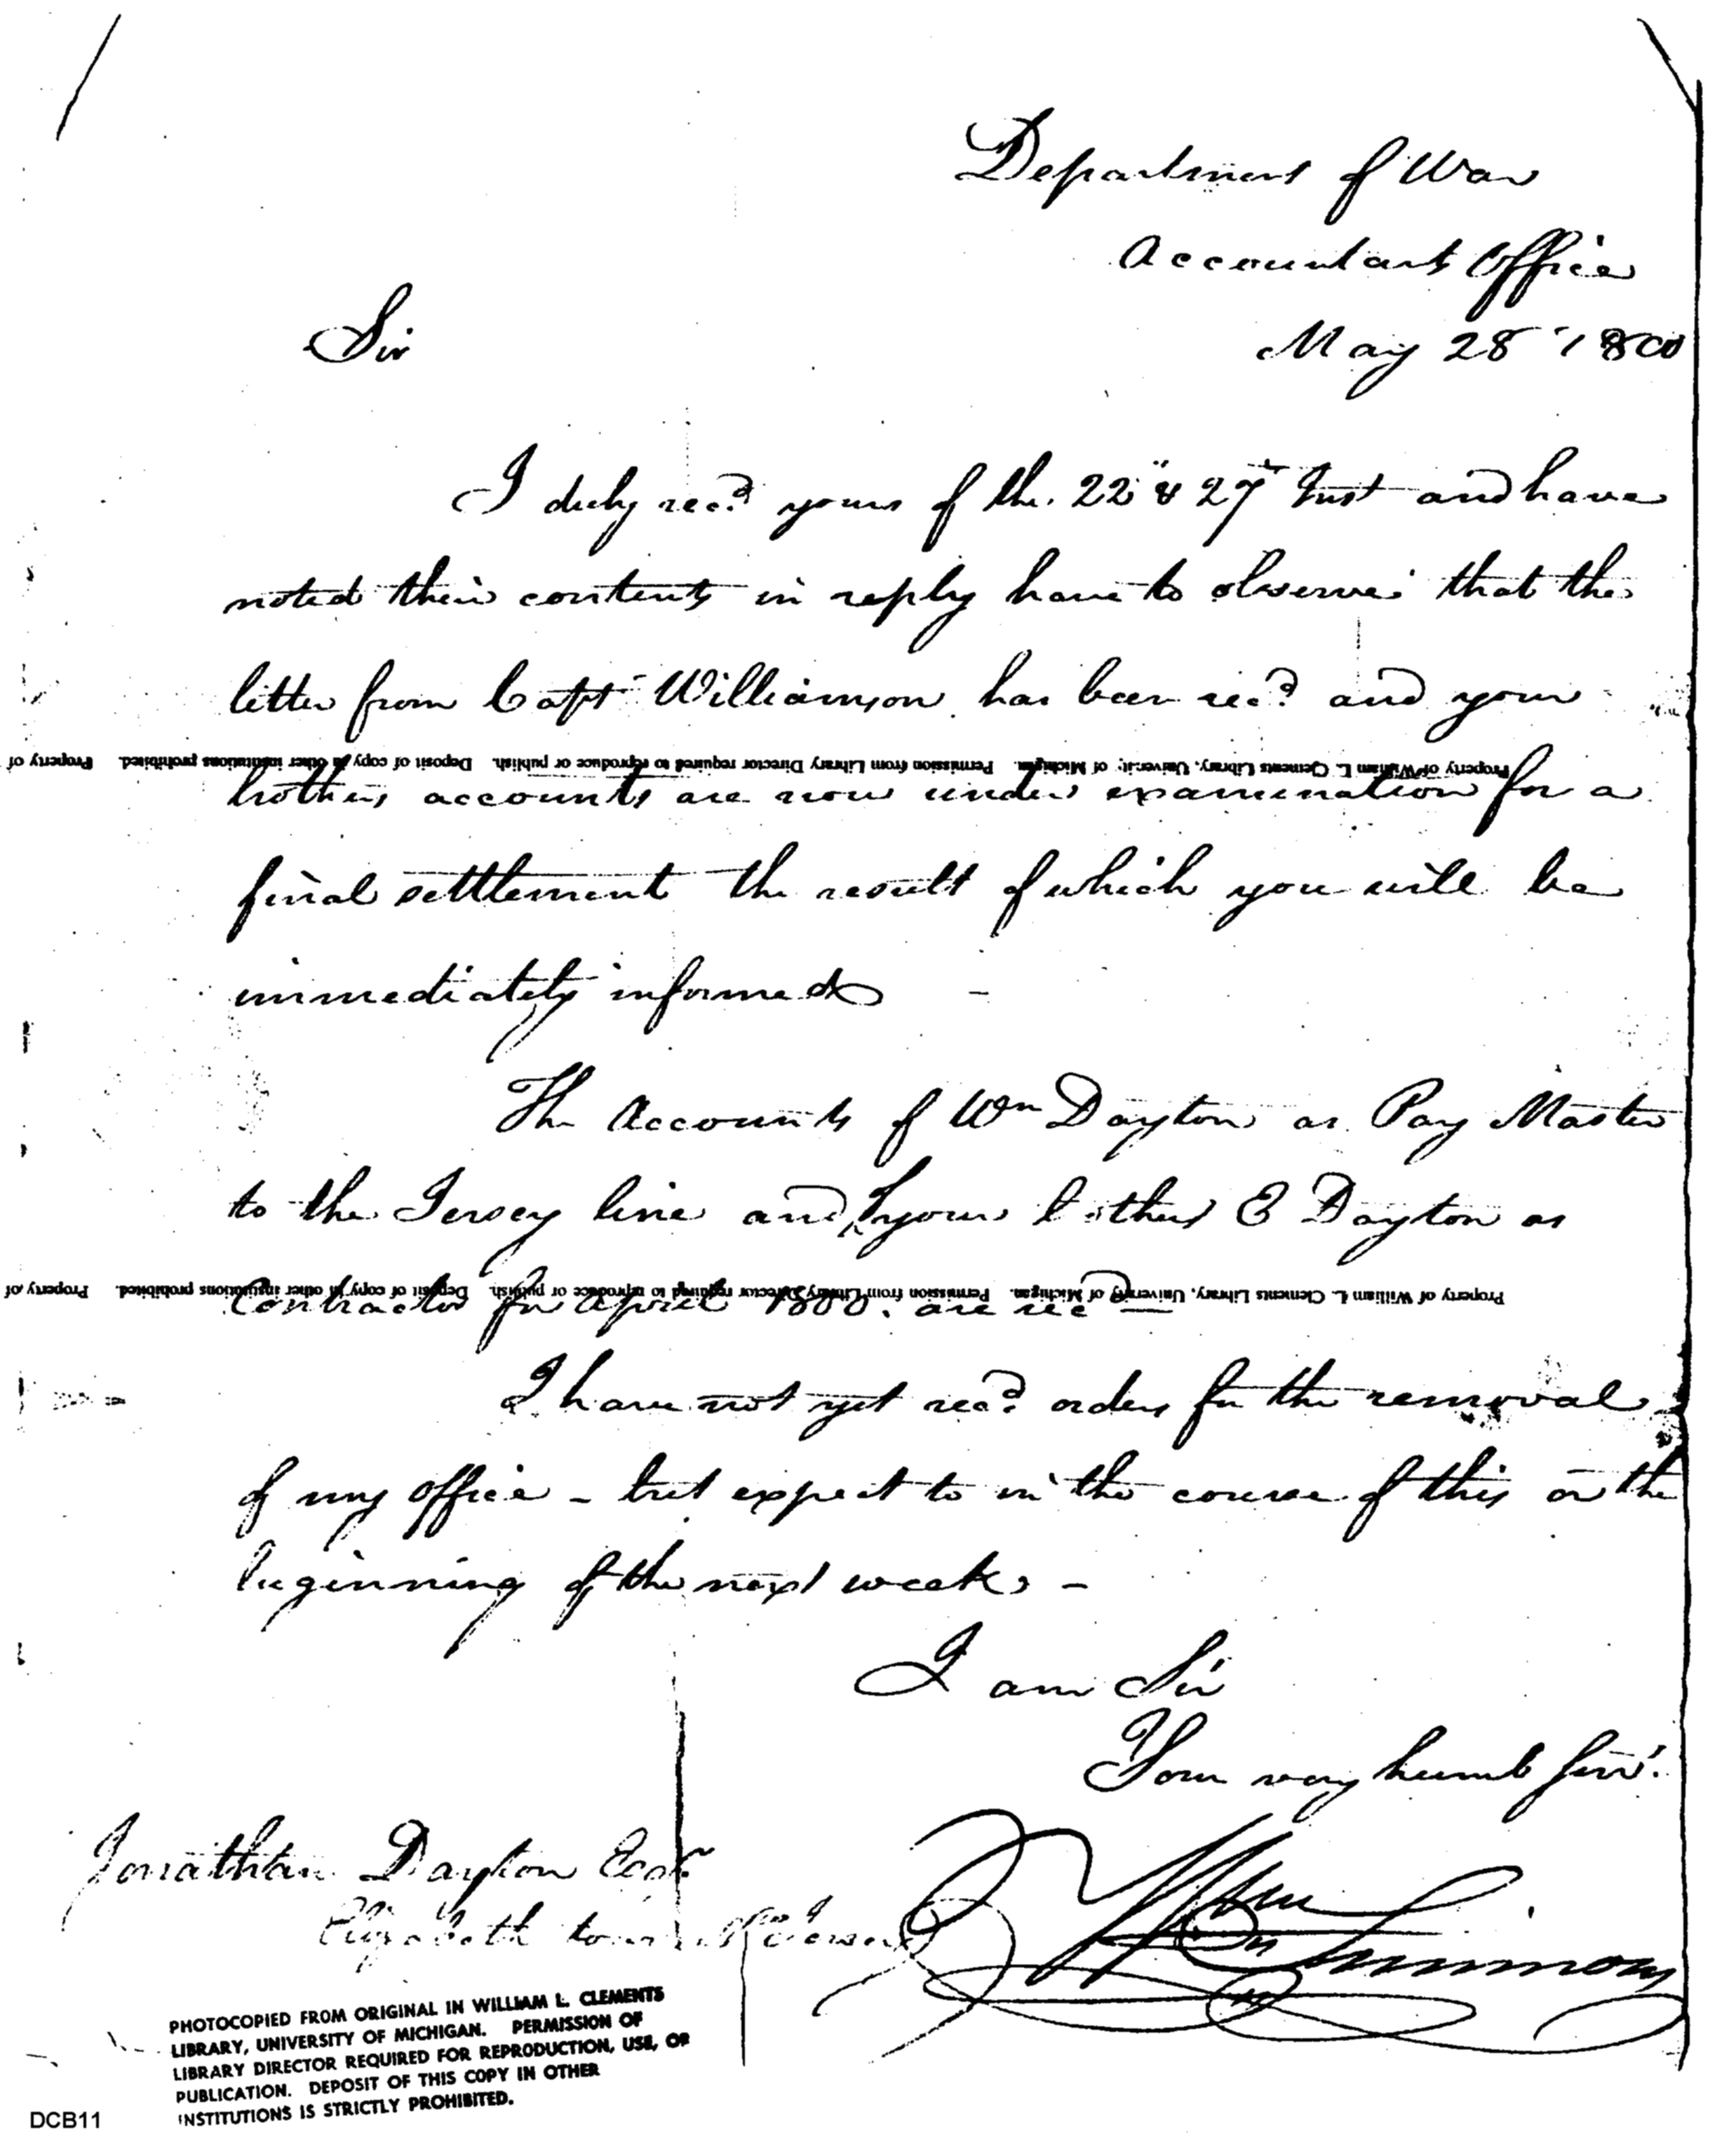 Department of War
Accountants Office
Sir
May 28th 1800
I duly rec.d yours of the 22d & 27th Inst and have
noted their contents in reply have to observe that the
letter from Capt Williamson has been rec.d and your
Property of William L. Clements Library, University of Michigan. Permission from Library Director required to reproduce or publish. Deposit of copy in other institutions prohibited. Property of
brothers accounts are now under examination for a
final settlement the result of which you will be
immediately informed –
The Accounts of Wm Dayton as Pay Master
to the Jersey line and of your brother E Dayton as
Property of William L. Clements Library, University of Michigan. Permission from Library Director required to reproduce or publish. Deposit of copy in other institutions prohibited. Property of
Contractor for April 1800. are recd —
I have not yet rec.d orders for the removal
of my office – but expect to in the course of this or the
beginning of the next week. –
I am Sir
Your very humb Servt.
Jonathan Dayton Esqr
Elizabeth town N Jersey
Wm Simmons
PHOTOCOPIED FROM ORIGINAL IN WILLIAM L. CLEMENTS
LIBRARY, UNIVERSITY OF MICHIGAN. PERMISSION OF
LIBRARY DIRECTOR REQUIRED FOR REPRODUCTION, USE, OR
PUBLICATION. DEPOSIT OF THIS COPY IN OTHER
INSTITUTIONS IS STRICTLY PROHIBITED.
DCB11